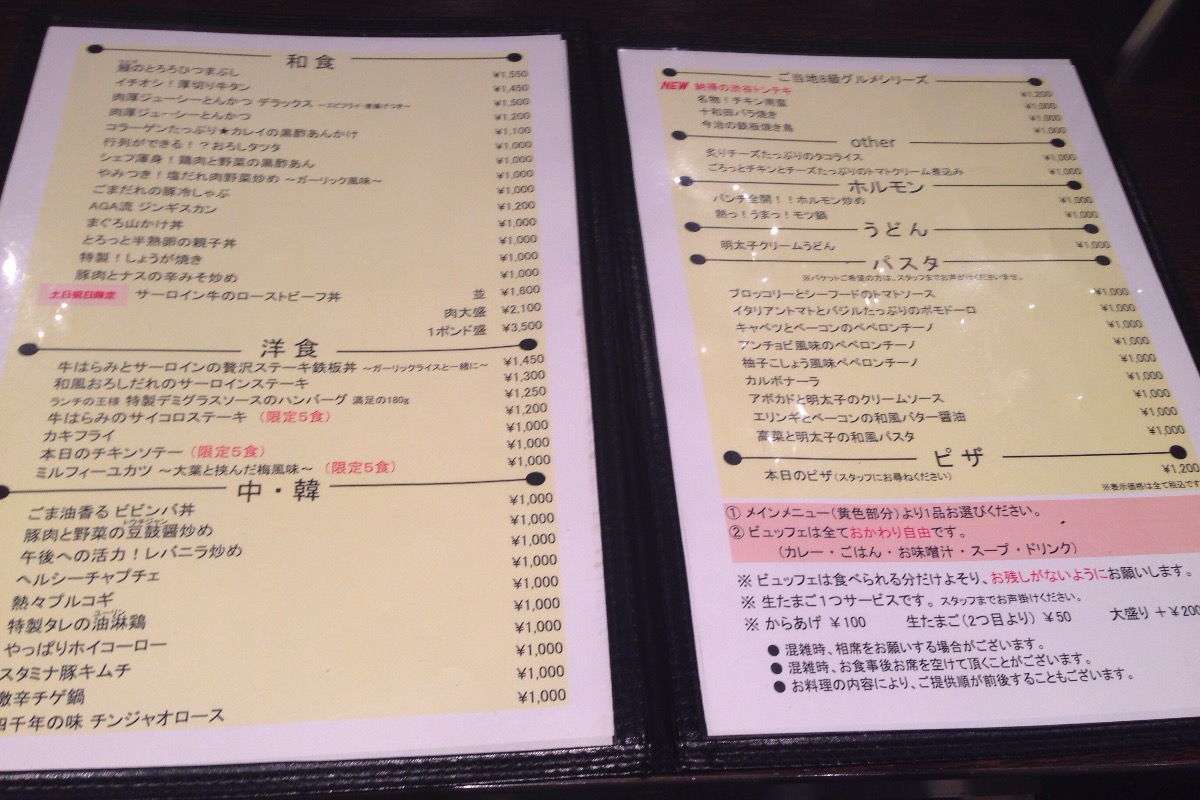 和食
鰻のとろろひつまぶし ¥1,550
イチオシ！厚切り牛タン ¥1,450
肉厚ジューシーとんかつ デラックス ¥1,500
肉厚ジューシーとんかつ ¥1,200
コラーゲンたっぷり★カレイの黒酢あんかけ ¥1,100
行列ができる！？おろしタツタ ¥1,000
シェフ渾身！鶏肉と野菜の黒酢あん ¥1,000
やみつき！塩だれ肉野菜炒め ～ガーリック風味～ ¥1,000
ごまだれの豚冷しゃぶ ¥1,000
AGA流 ジンギスカン ¥1,200
まぐろ山かけ丼 ¥1,000
とろっと半熟卵の親子丼 ¥1,000
特製！しょうが焼き ¥1,000
豚肉とナスの辛みそ炒め ¥1,000
土日祝日限定 サーロイン牛のローストビーフ丼 並 ¥1,600
肉大盛 ¥2,100
1ポンド盛 ¥3,500
洋食
牛はらみとサーロインの贅沢ステーキ鉄板丼 ～ガーリックライスと一緒に～ ¥1,450
和風おろしだれのサーロインステーキ ¥1,300
ランチの王様 特製デミグラスソースのハンバーグ 満足の180g ¥1,250
牛はらみのサイコロステーキ（限定5食） ¥1,200
カキフライ ¥1,000
本日のチキンソテー（限定5食） ¥1,000
ミルフィーユカツ ～大葉と挟んだ梅風味～（限定5食） ¥1,000
中・韓
ごま油香る ビビンバ丼 ¥1,000
豚肉と野菜の豆鼓醤炒め ¥1,000
午後への活力！レバニラ炒め ¥1,000
ヘルシーチャプチェ ¥1,000
熱々プルコギ ¥1,000
特製タレの油淋鶏 ¥1,000
やっぱりホイコーロー ¥1,000
スタミナ豚キムチ ¥1,000
激辛チゲ鍋 ¥1,000
四千年の味 チンジャオロース
ご当地B級グルメシリーズ
NEW 納得の渋谷トンテキ ¥1,200
名物！チキン南蛮 ¥1,000
十和田バラ焼き ¥1,000
今治の鉄板焼き鳥 ¥1,000
other
炙りチーズたっぷりのタコライス ¥1,000
ごろっとチキンとチーズたっぷりのトマトクリーム煮込み ¥1,000
ホルモン
パンチ全開！！ホルモン炒め ¥1,000
熱っ！うまっ！モツ鍋 ¥1,000
うどん
明太子クリームうどん ¥1,000
パスタ
※バケットご希望の方は、スタッフまでお声がけくださいませ。
ブロッコリーとシーフードのトマトソース ¥1,000
イタリアントマトとバジルたっぷりのポモドーロ ¥1,000
キャベツとベーコンのペペロンチーノ ¥1,000
アンチョビ風味のペペロンチーノ ¥1,000
柚子こしょう風味ペペロンチーノ ¥1,000
カルボナーラ ¥1,000
アボカドと明太子のクリームソース ¥1,000
エリンギとベーコンの和風バター醤油 ¥1,000
高菜と明太子の和風パスタ ¥1,000
ピザ
本日のピザ（スタッフにお尋ねください） ¥1,200
※表示価格は全て税込です
① メインメニュー（黄色部分）より1品お選びください。
② ビュッフェは全ておかわり自由です。
（カレー・ごはん・お味噌汁・スープ・ドリンク）
※ ビュッフェは食べられる分だけよそり、お残しがないようにお願いします。
※ 生たまご1つサービスです。スタッフまでお声掛けください。
※ からあげ ¥100 生たまご（2つ目より）¥50 大盛り＋¥200
● 混雑時、相席をお願いする場合がございます。
● 混雑時、お食事後お席を空けて頂くことがございます。
● お料理の内容により、ご提供順が前後することもございます。